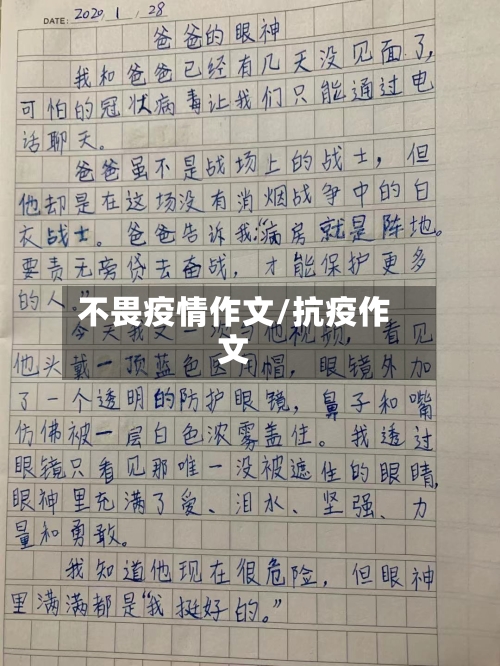 DATE: 2020 1 28
爸爸的眼神
我和爸爸已经有几天没见面了,
可怕的冠状病毒让我们只能通过电
话聊天。
爸爸虽不是战场上的战士，但
他却是在这场没有消烟战争中的白
衣战士。爸爸告诉我:"病房就是阵地。
要责无旁贷去奋战，才能保护更多
的人。"
不畏疫情作文/抗疫作
文
今天我又一 他视频，看见
他头戴一顶蓝色医用帽，眼镜外加
了一个透明的防护眼镜，鼻子和嘴
仿佛被一层白色浓雾盖住。我透过
眼镜只看见那唯一没被遮住的眼睛,
眼神里充满了爱、泪水、坚强、力
量和勇敢。
我知道他现在很危险，但眼神
里满满都是"我挺好的。"